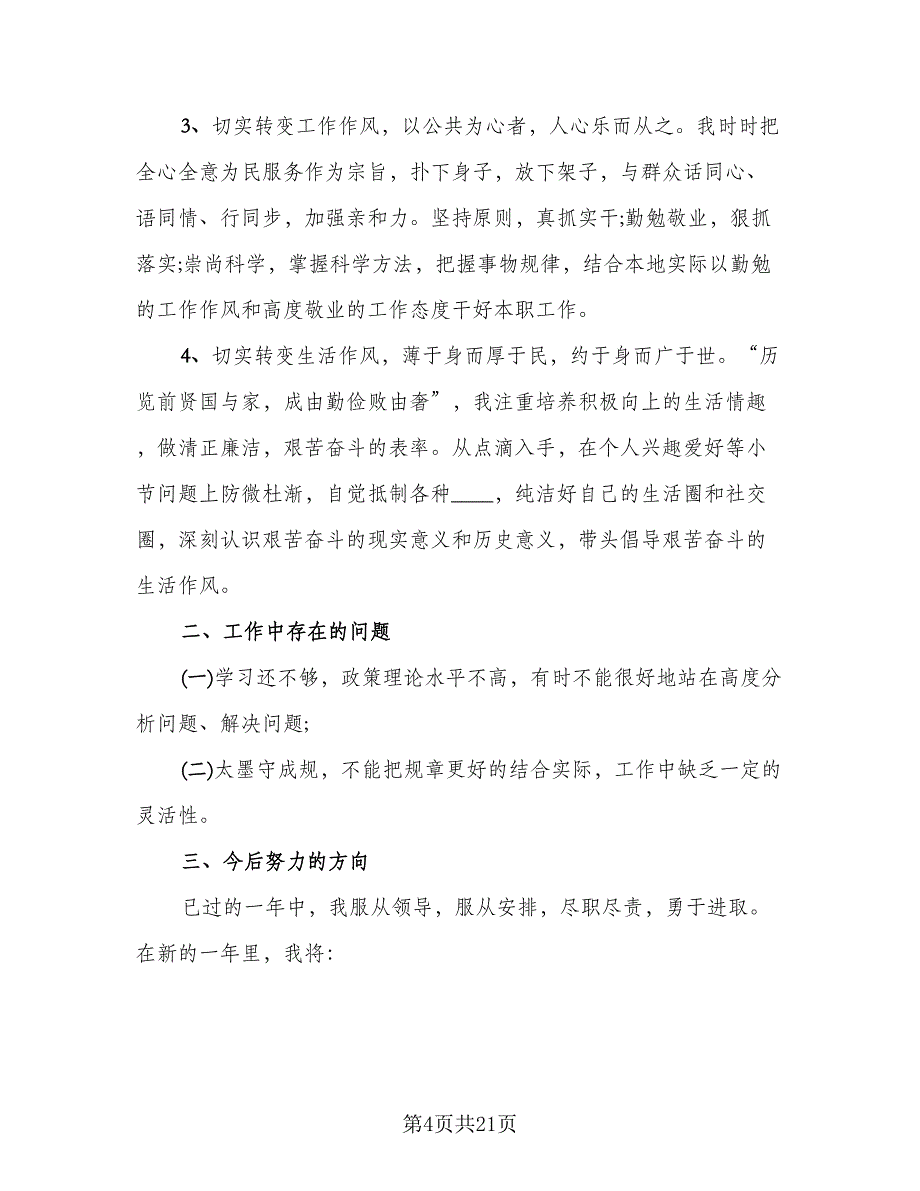 3、切实转变工作作风，以公共为心者，人心乐而从之。我时时把
全心全意为民服务作为宗旨，扑下身子，放下架子，与群众话同心、
语同情、行同步，加强亲和力。坚持原则，真抓实干;勤勉敬业，狠抓
落实;崇尚科学，掌握科学方法，把握事物规律，结合本地实际以勤勉
的工作作风和高度敬业的工作态度干好本职工作。
4、切实转变生活作风，薄于身而厚于民，约于身而广于世。“历
览前贤国与家，成由勤俭败由奢”，我注重培养积极向上的生活情趣
，做清正廉洁，艰苦奋斗的表率。从点滴入手，在个人兴趣爱好等小
节问题上防微杜渐，自觉抵制各种____，纯洁好自己的生活圈和社交
圈，深刻认识艰苦奋斗的现实意义和历史意义，带头倡导艰苦奋斗的
生活作风。
二、工作中存在的问题
(一)学习还不够，政策理论水平不高，有时不能很好地站在高度分
析问题、解决问题;
(二)太墨守成规，不能把规章更好的结合实际，工作中缺乏一定的
灵活性。
三、今后努力的方向
已过的一年中，我服从领导，服从安排，尽职尽责，勇于进取。
在新的一年里，我将：
第4页共21页